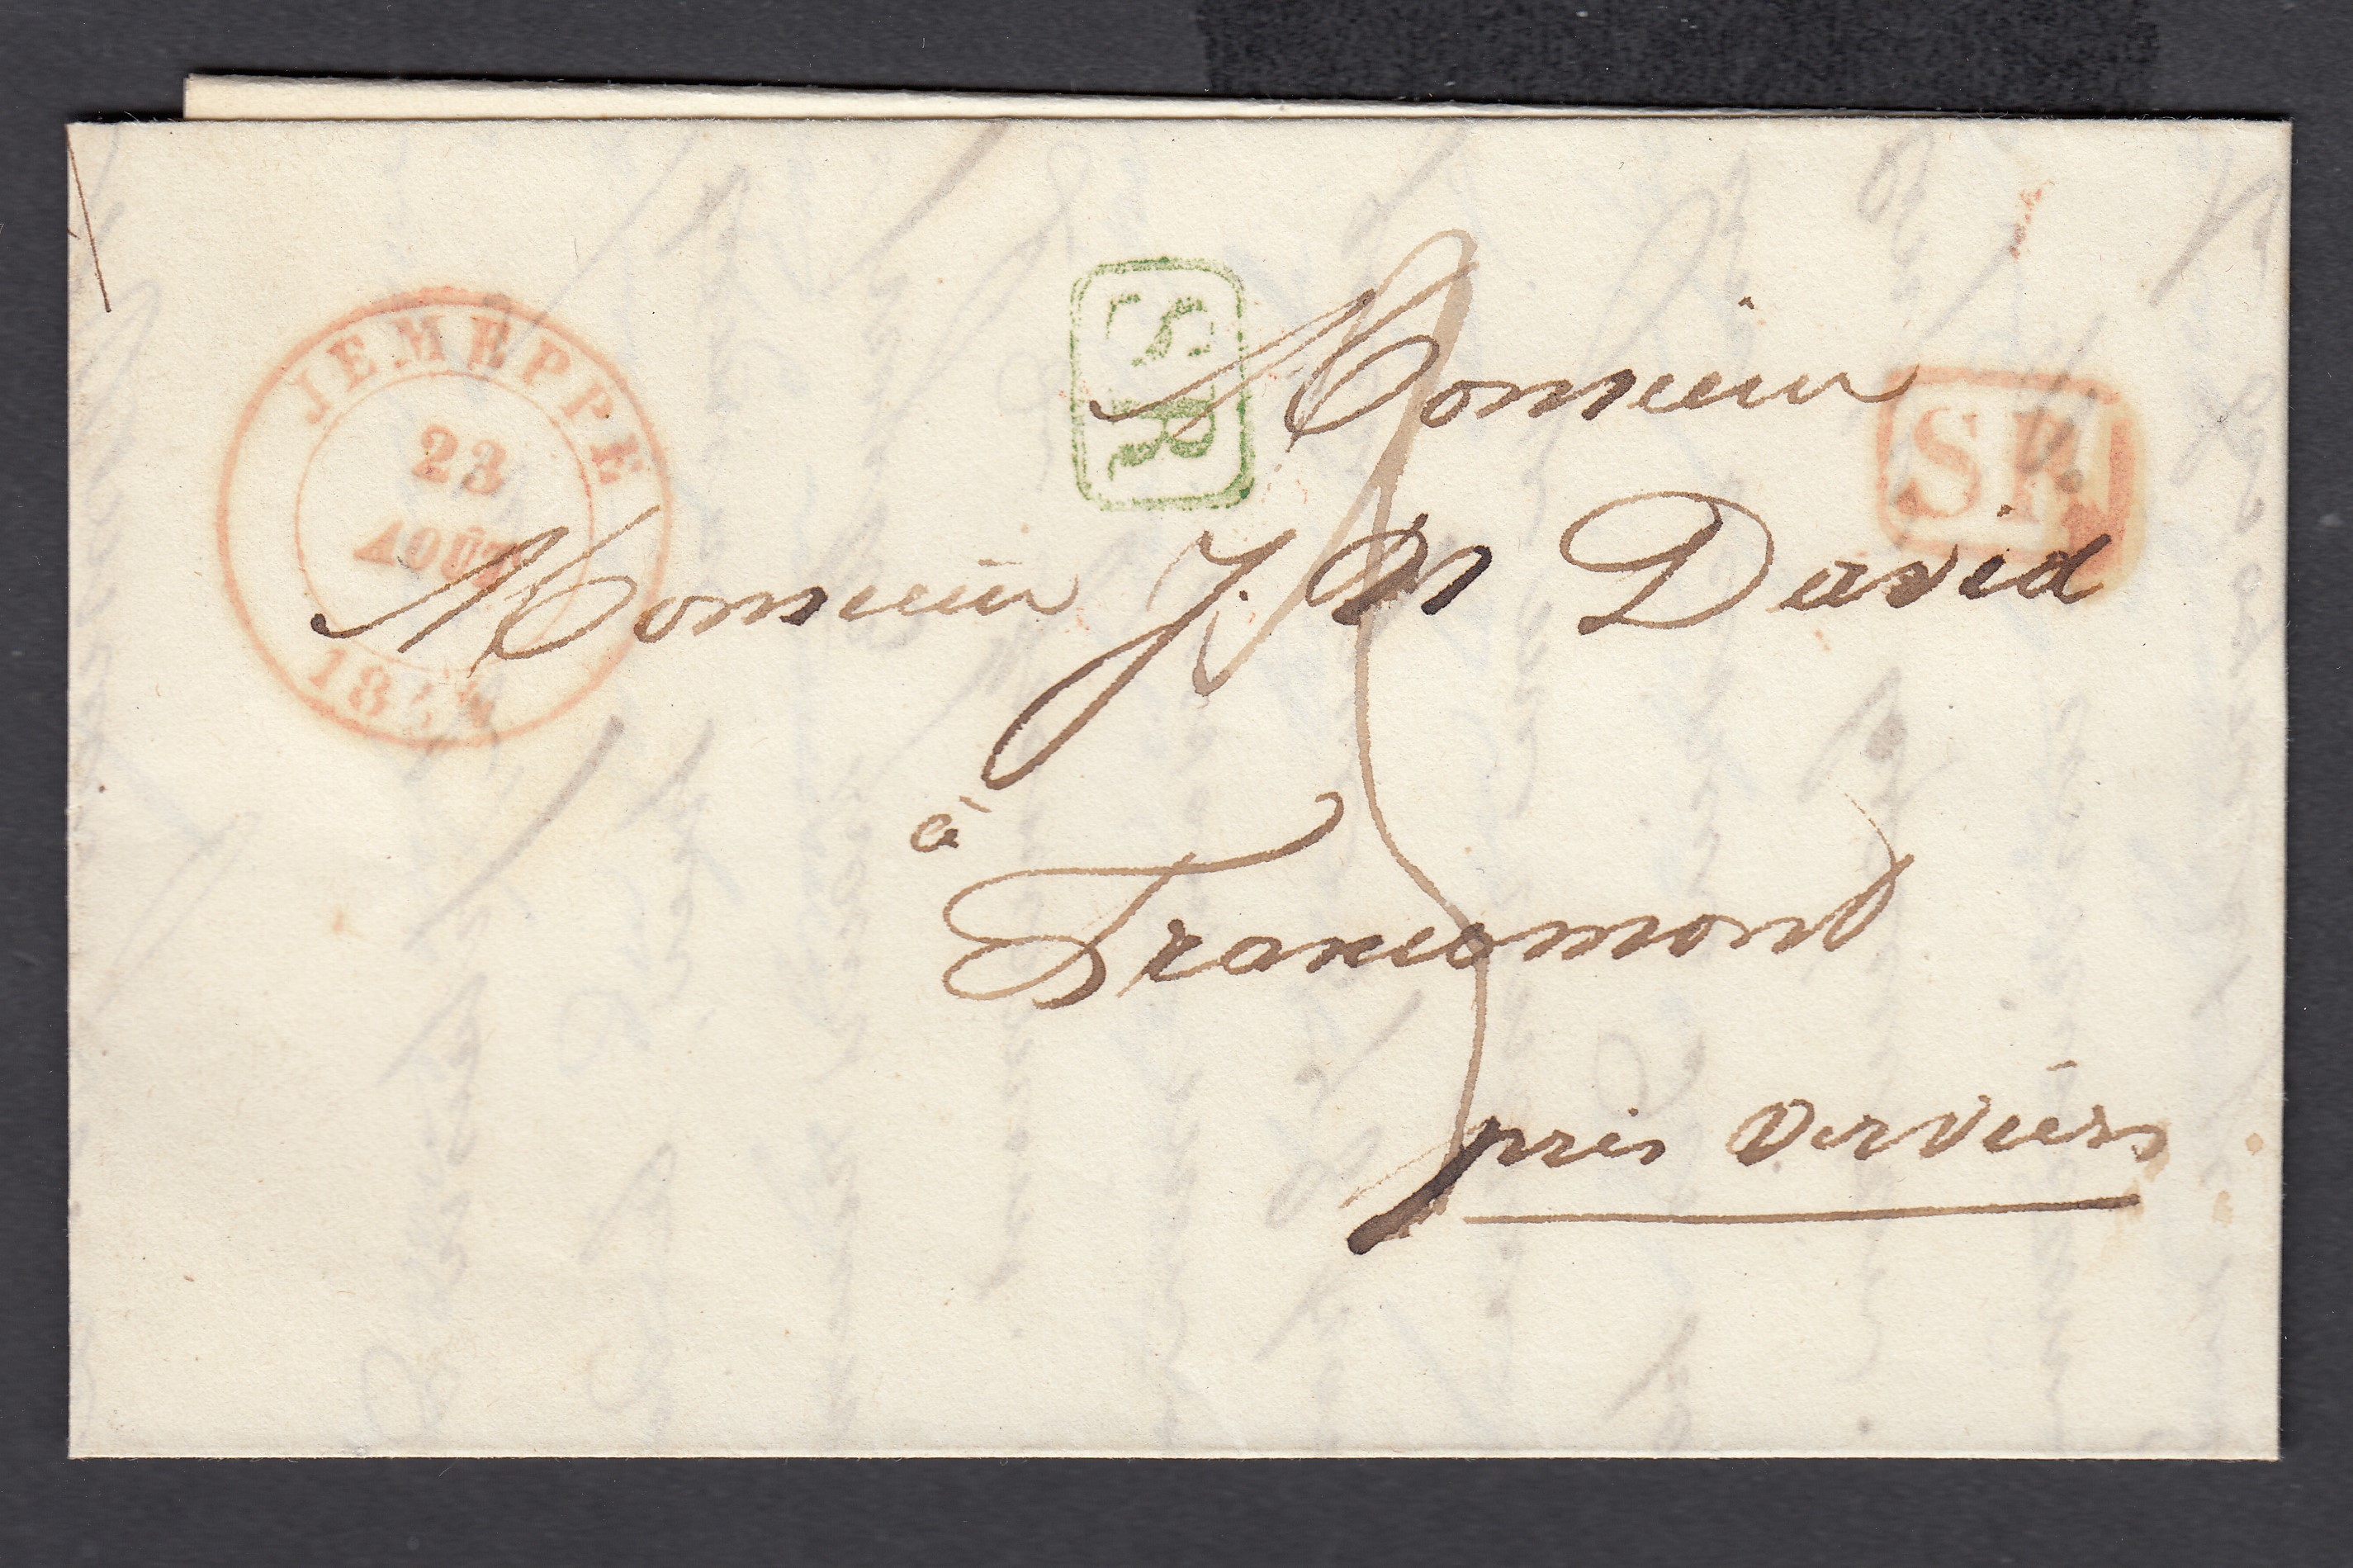 JEMEPPE
23
AOÛT
SR
SR
Monsieur
Monsieur J. N David
à
Francomont
près Verviers